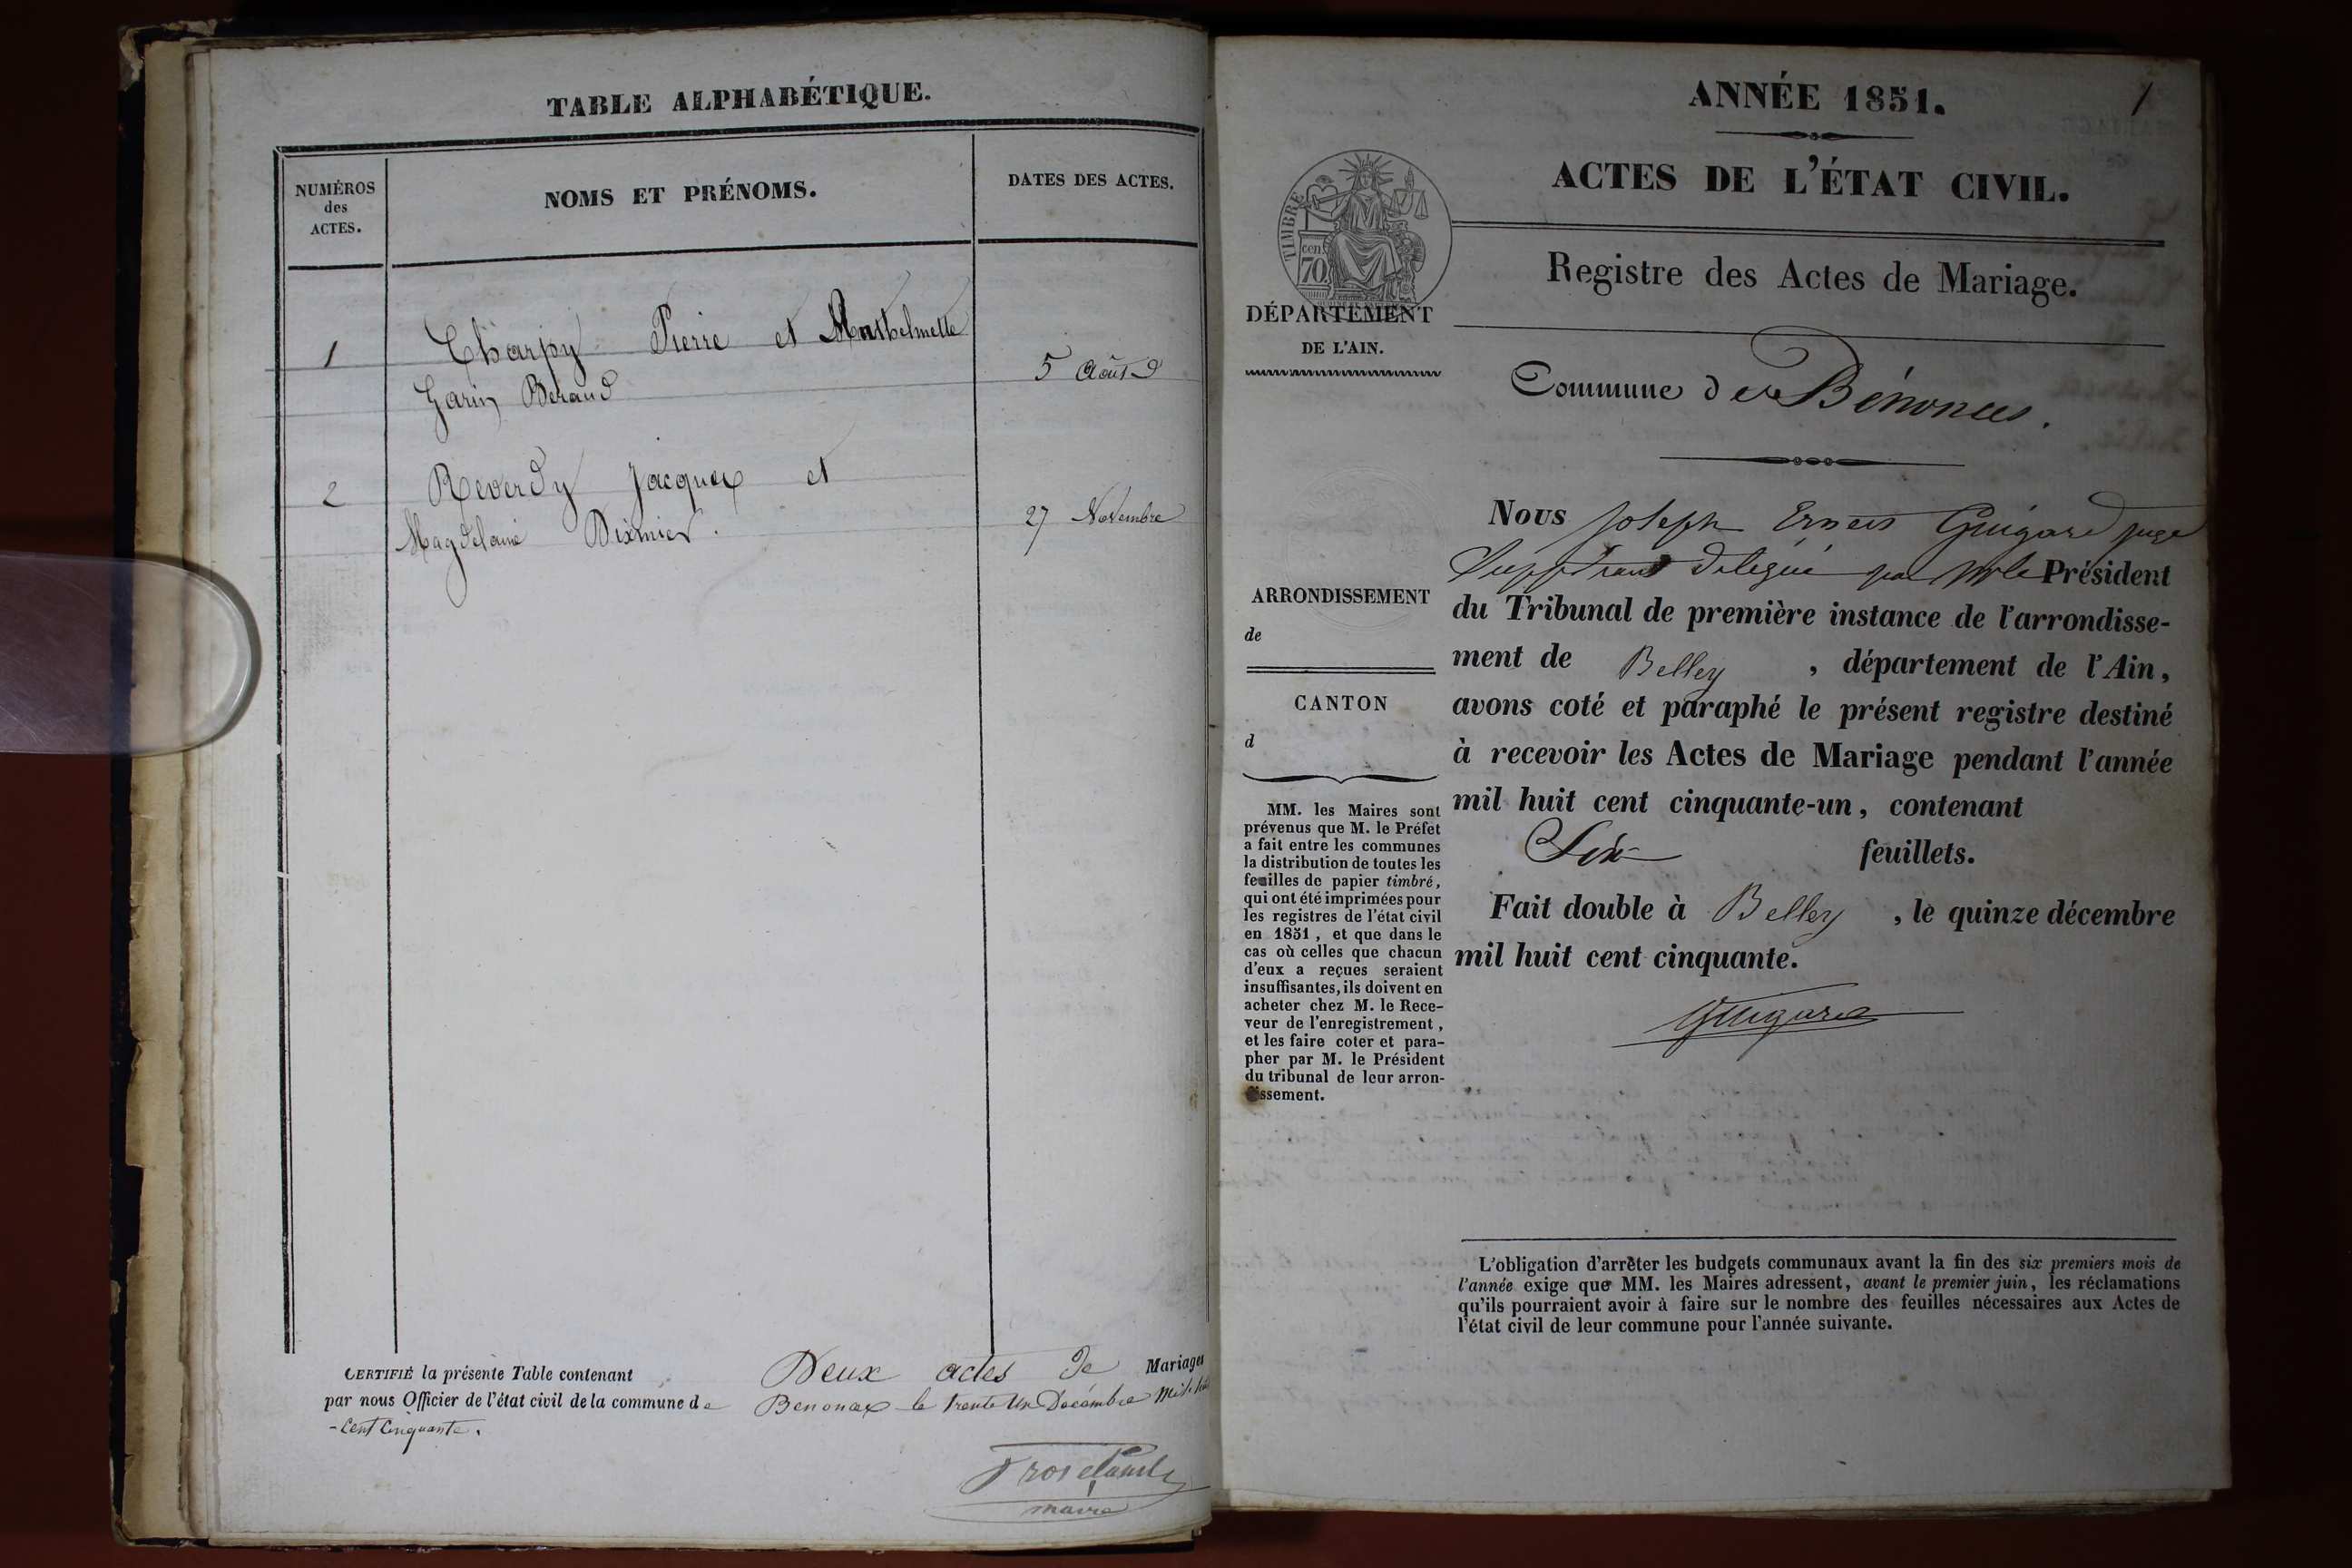 TABLE ALPHABÉTIQUE.
NUMÉROS
des
ACTES.
NOMS ET PRÉNOMS.
DATES DES ACTES.
1 Charpy Pierre et
Garin Beraud
5 Août
2 Reverdy Jacques et
Magdelaine Diximier.
27 Novembre
CERTIFIÉ la présente Table contenant Deux actes de Mariages
par nous Officier de l'état civil de la commune de Benonces le trente un Décembre mil huit
-Cent Cinquante.
maire
ANNÉE 1851.
1
ACTES DE L'ÉTAT CIVIL.
TIMBRE
70 cen
Registre des Actes de Mariage.
DÉPARTEMENT
DE L'AIN.
Commune de Bénonces.
Nous Joseph Ernest Guigard juge
Suppléant délégué par Mr le Président
du Tribunal de première instance de l'arrondisse-
ment de Belley , département de l'Ain,
avons coté et paraphé le présent registre destiné
à recevoir les Actes de Mariage pendant l'année
mil huit cent cinquante-un, contenant
Six feuillets.
Fait double à Belley , le quinze décembre
mil huit cent cinquante.
Guigard
ARRONDISSEMENT
de
CANTON
d
MM. les Maires sont
prévenus que M. le Préfet
a fait entre les communes
la distribution de toutes les
feuilles de papier timbré,
qui ont été imprimées pour
les registres de l'état civil
en 1851, et que dans le
cas où celles que chacun
d'eux a reçues seraient
insuffisantes, ils doivent en
acheter chez M. le Rece-
veur de l'enregistrement,
et les faire coter et para-
pher par M. le Président
du tribunal de leur arron-
dissement.
L'obligation d'arrêter les budgets communaux avant la fin des six premiers mois de
l'année exige que MM. les Maires adressent, avant le premier juin, les réclamations
qu'ils pourraient avoir à faire sur le nombre des feuilles nécessaires aux Actes de
l'état civil de leur commune pour l'année suivante.